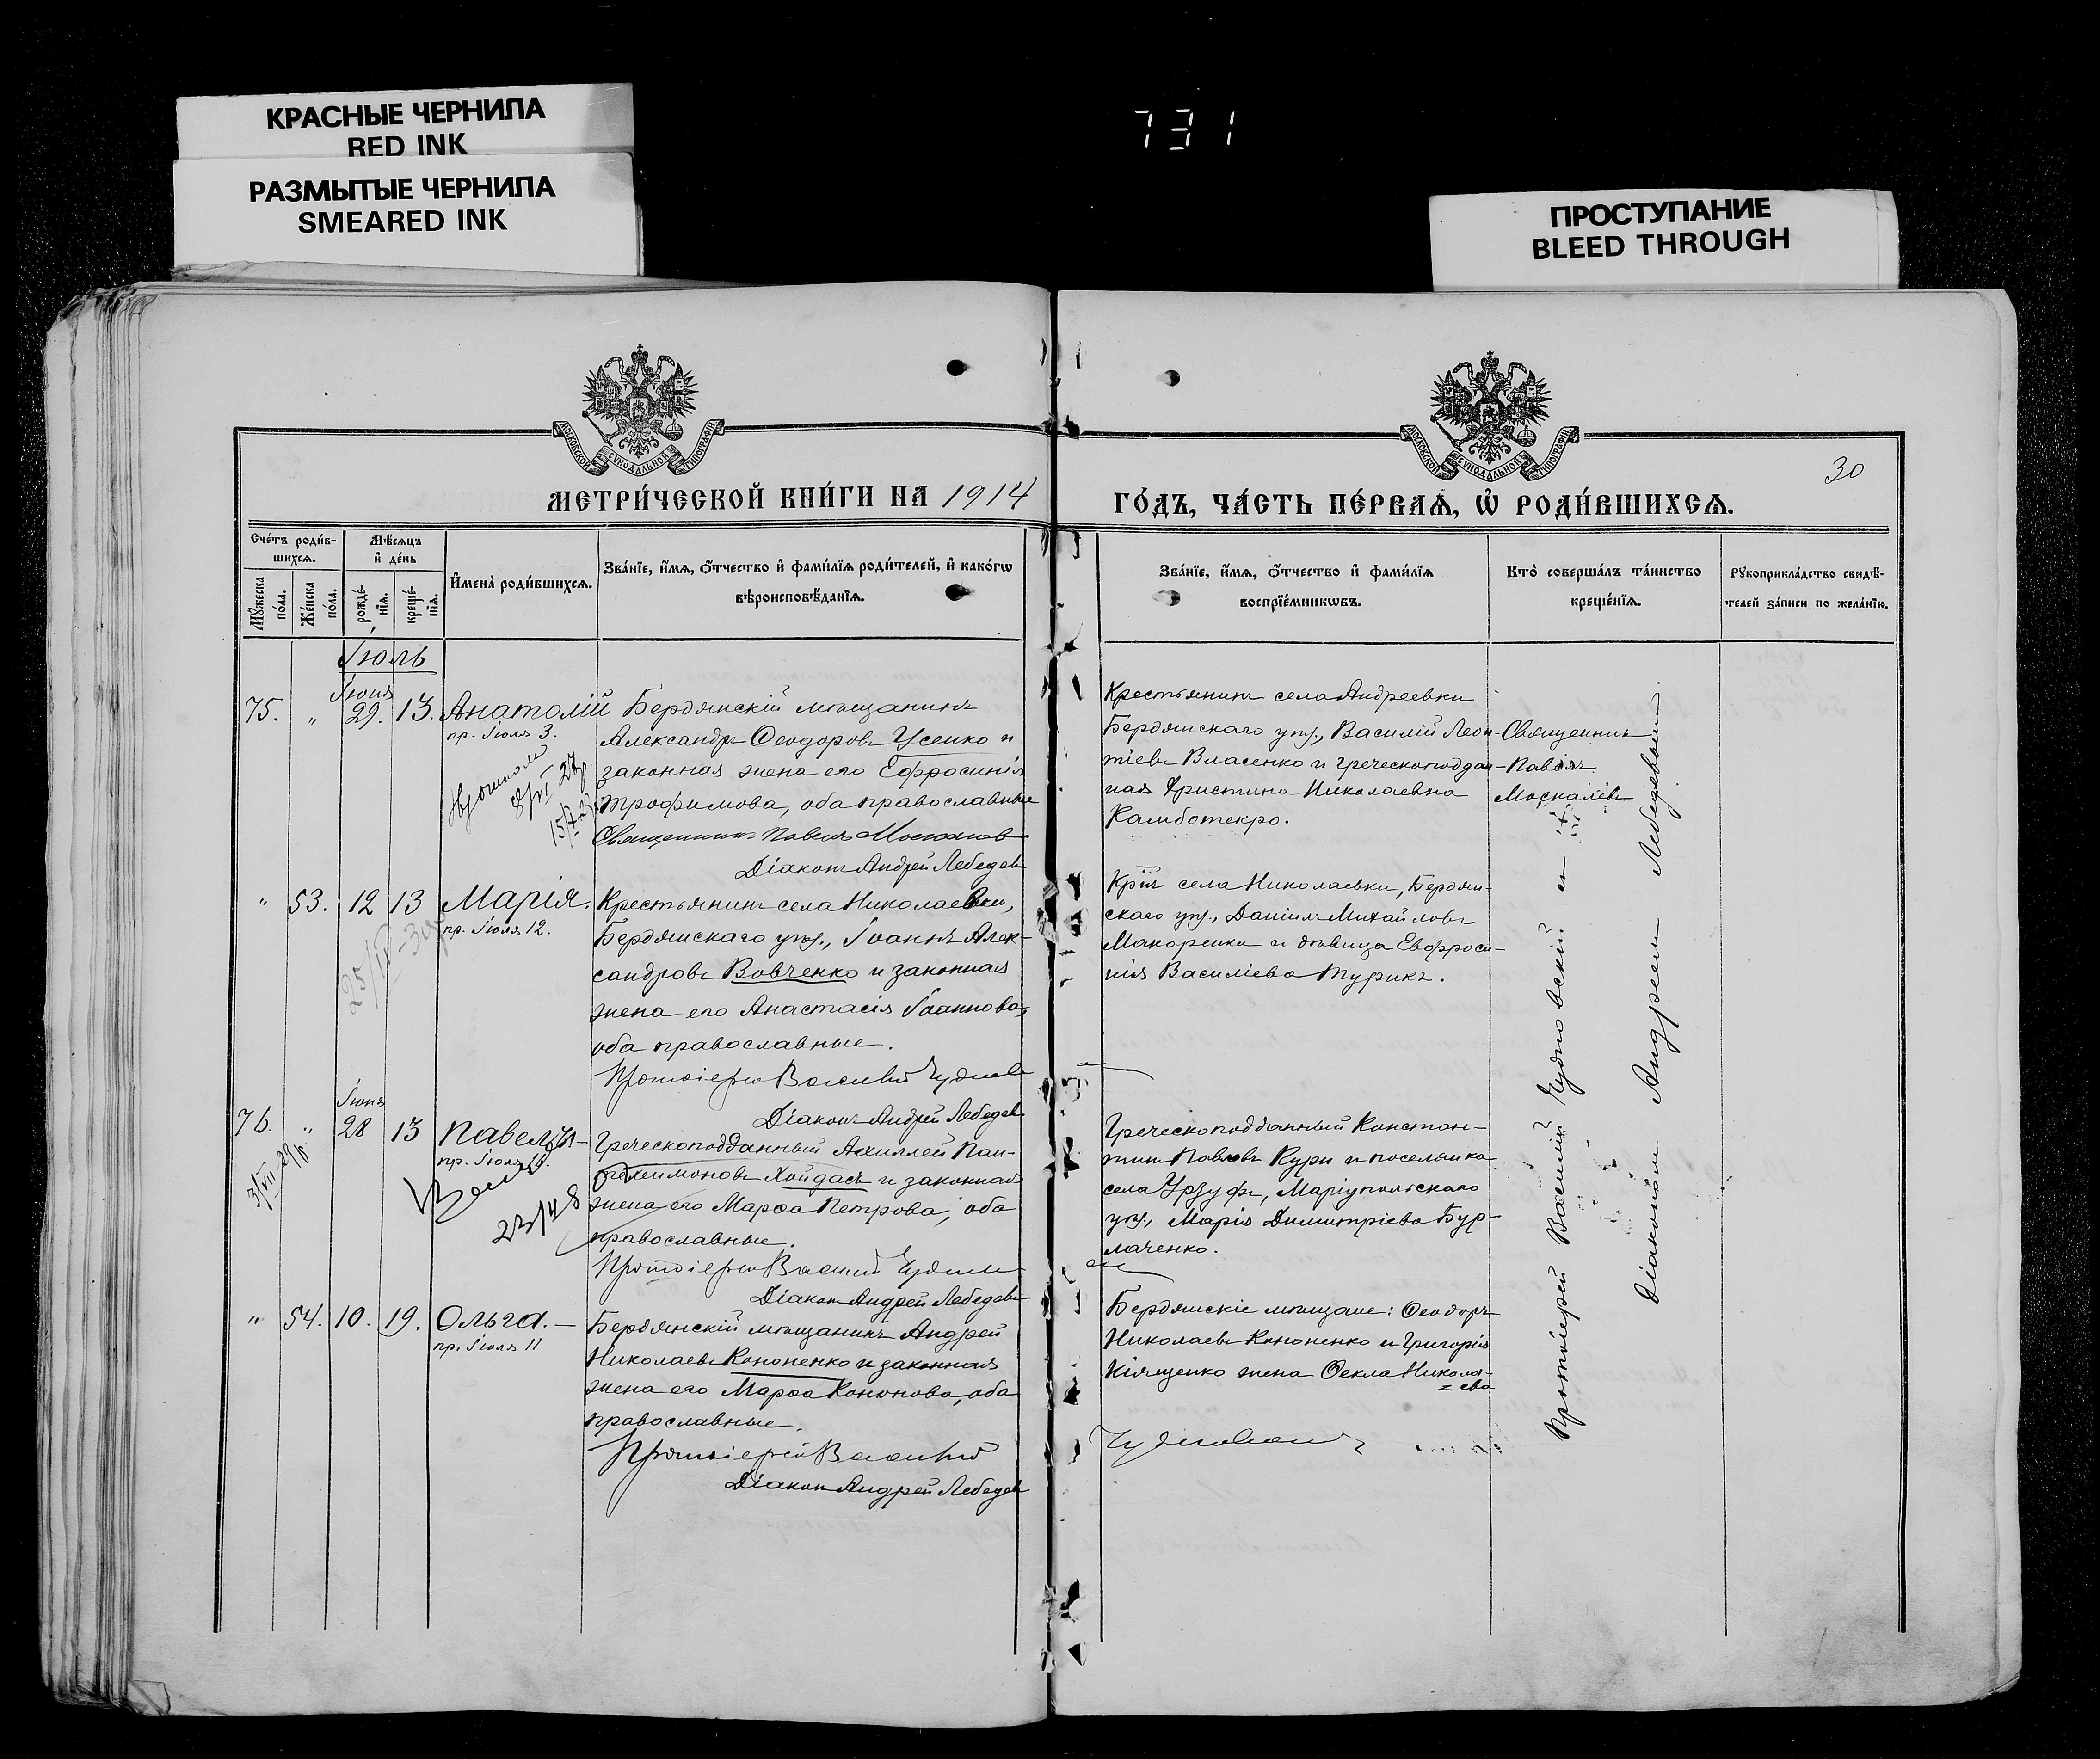 КРАСНЫЕ ЧЕРНИЛА
RED INK
РАЗМЫТЫЕ ЧЕРНИЛА
SMEARED INK
731
ПРОСТУПАНИЕ
BLEED THROUGH
МОСКОВСКОЙ СѴНОДАЛЬНОЙ ТИПОГРАФІИ
МОСКОВСКОЙ СѴНОДАЛЬНОЙ ТИПОГРАФІИ
30
МЕТРИ́ЧЕСКОЙ КНИ́ГИ НА 1914
ГО́ДЪ, ЧА́СТЬ ПЕ́РВАѦ, Ѽ РОДИ́ВШИХСѦ.
Сче́тъ роди́в-
шихсѧ.
Мꙋ́жеска по́ла.
Же́нска по́ла.
Мѣ́сѧцъ
и҆ де́нь
рожде́-
нїѧ.
креще́-
нїѧ.
И҆мена̀ роди́вшихсѧ.
Зва́нїе, и҆́мѧ, ѻ҆́тчество и҆ фами́лїѧ роди́телей, и҆ како́гѡ
вѣроисповѣ́данїѧ.
Зва́нїе, и҆́мѧ, ѻ҆́тчество и҆ фами́лїѧ
воспрїе́мникѡвъ.
Кто̀ соверша́лъ та́инство
креще́нїѧ.
Рꙋкоприкла́дство свидѣ́-
телей за́писи по жела́нїю.
Іюль
Іюня
75. " 29. 13. Анатолій
пр. Іюля 3.
Бердянскій мѣщанинъ
Александръ Ѳеодоровъ Усенко и
законная жена его Ефросинія
Трофимова, оба православные
Священникъ Павелъ Москалев
Діаконъ Андрей Лебедев
Крестьянинъ села Андреевки
Бердянскаго уѣз., Василій Леон-
тіевъ Власенко и греческоподдан-
ная Христина Николаевна
Камботекро.
Священникъ
Павелъ
Москалевъ
" 53. 12 13 Марія.
пр. Іюля 12.
Крестьянинъ села Николаевки,
Бердянскаго уѣз., Іоаннъ Алек-
сандровъ Вовченко и законная
жена его Анастасія Іоаннова,
оба православные.
Протоіерей Василій Чуднов
Діаконъ Андрей Лебедев
Кр̄нъ села Николаевки, Бердян-
скаго уѣз., Даніилъ Михайловъ
Макоренко и дѣвица Евфроси-
нія Василіева Турикъ.
Іюня
76. " 28 13 Павелъ
пр. Іюля
23/48
Греческоподданный Ахиллей Пан-
телеимоновъ Хойдасъ и законная
жена его Марѳа Петрова, оба
православные.
Протоіерей Василій Чудно
Діакон Андрей Лебедевъ
Греческоподданный Констан-
тинъ Павловъ Кури и поселянка
села Урзуфъ, Маріупольскаго
уѣз., Марія Димитріева Бур-
лаченко.
" 54. 10. 19. Ольга.
пр. Іюля 11
Бердянскій мѣщанинъ Андрей
Николаевъ Кононенко и законная
жена его Марѳа Кононова, оба
православные.
Протоіерей Василій
Діакон Андрей Лебедев
Бердянскіе мѣщане: Ѳеодоръ
Николаевъ Кононенко и Григорія
Кіященко жена Ѳекла Никола-
ева
Чудновскій
Протоіерей Василій Чудновскій и
Діакономъ Андреем Лебедевым